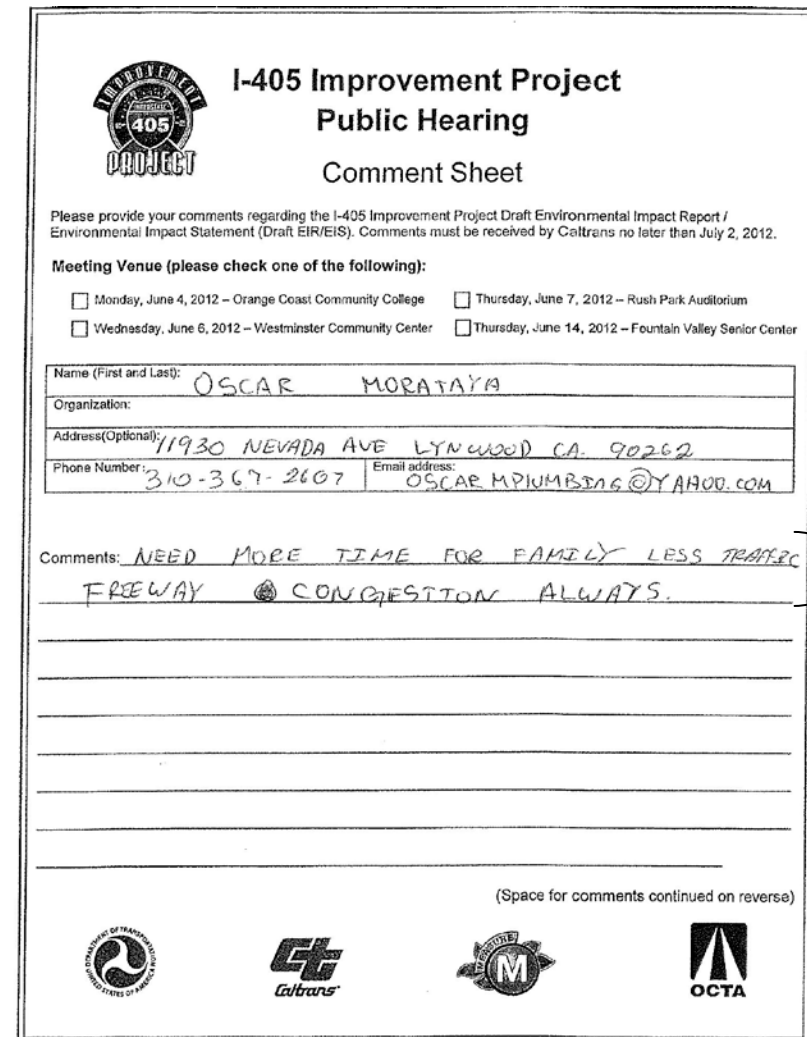 IMPROVEMENT
INTERSTATE
405
PROJECT
I-405 Improvement Project
Public Hearing
Comment Sheet
Please provide your comments regarding the I-405 Improvement Project Draft Environmental Impact Report /
Environmental Impact Statement (Draft EIR/EIS). Comments must be received by Caltrans no later than July 2, 2012.
Meeting Venue (please check one of the following):
Monday, June 4, 2012 – Orange Coast Community College
Thursday, June 7, 2012 – Rush Park Auditorium
Wednesday, June 6, 2012 – Westminster Community Center
Thursday, June 14, 2012 – Fountain Valley Senior Center
Name (First and Last): OSCAR MORATAYA
Organization:
Address(Optional): 11930 NEVADA AVE LYNWOOD CA. 90262
Phone Number: 310-367-2607
Email address: OSCAR MPLUMBING@YAHOO.COM
Comments: NEED MORE TIME FOR FAMILY LESS TRAFFIC
FREEWAY CONGESTION ALWAYS.
(Space for comments continued on reverse)
DEPARTMENT OF TRANSPORTATION
UNITED STATES OF AMERICA
Caltrans
MEASURE
M
OCTA